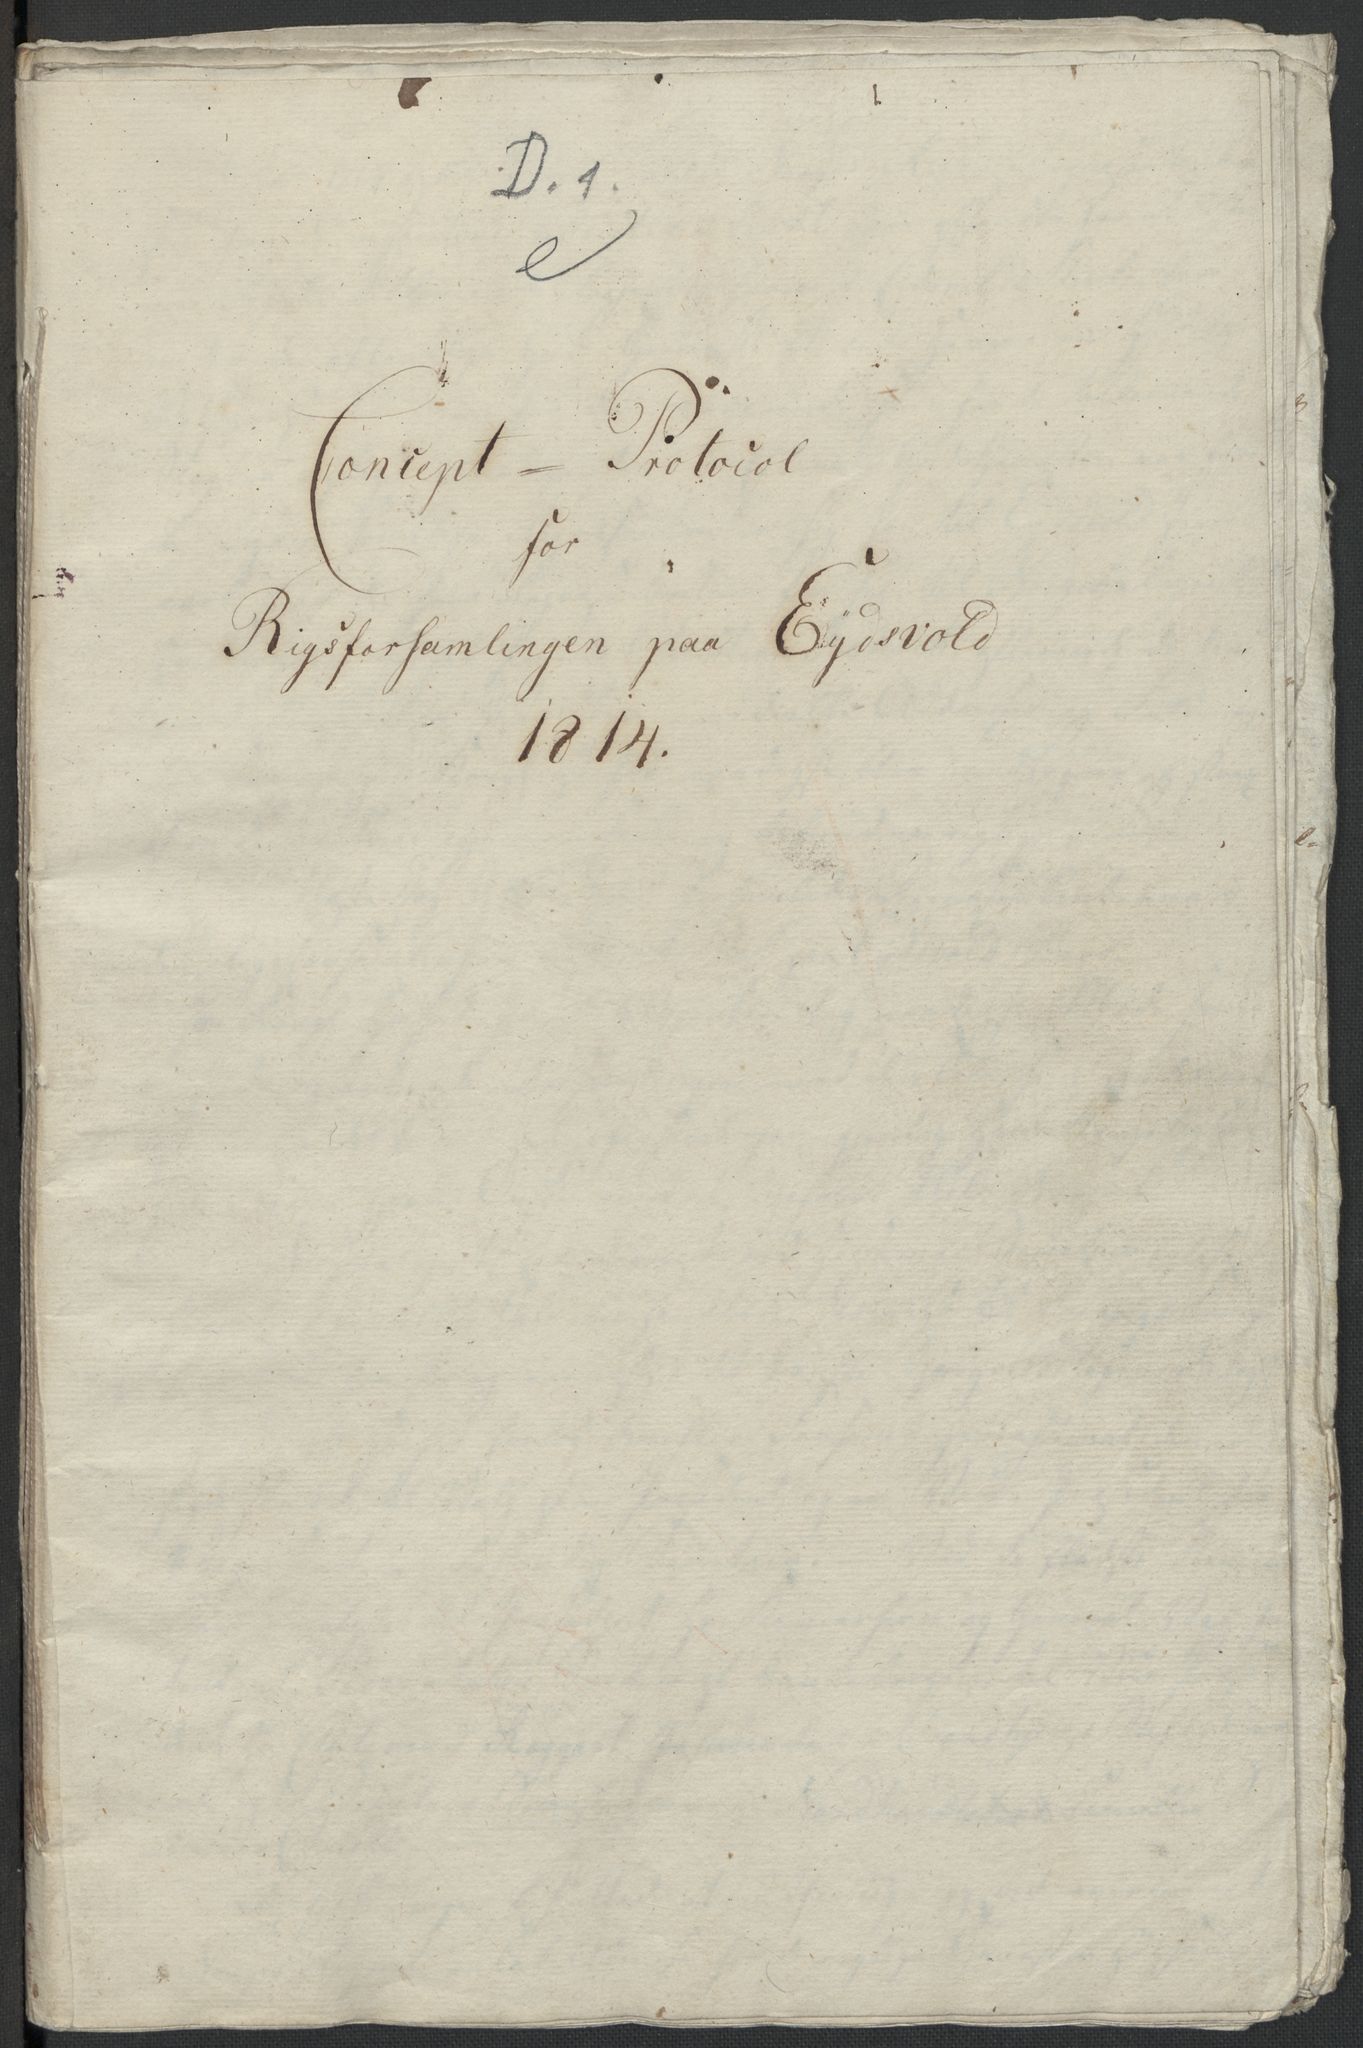 D. 1.
e
Concept = Protocol
for
Rigsforsamlingen paa Eÿdsvold
1814.